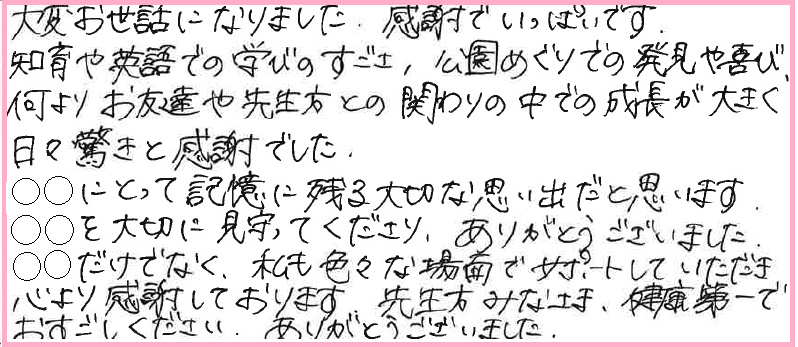 大変お世話になりました. 感謝でいっぱいです.
知育や英語での学びのすごさ, 公園めぐりでの発見や喜び,
何より お友達や先生方との関わりの中での成長が大きく
日々驚きと感謝でした.
○○にとって記憶に残る大切な思い出だと思います.
○○を大切に見守ってくださり, ありがとうございました.
○○だけでなく, 私も色々な場面でサポートしていただき
心より感謝しております 先生方みなさま, 健康第一で
おすごしください. ありがとうございました.